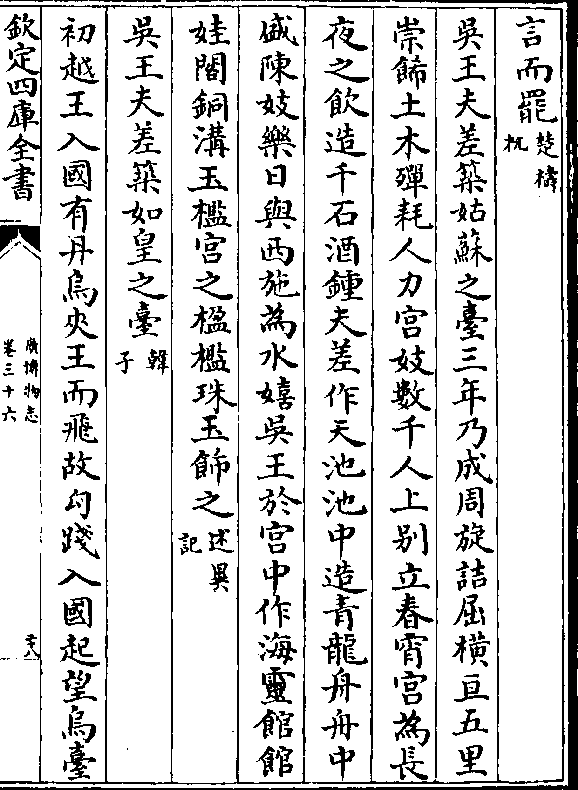 言而罷楚檮杌
吳王夫差築姑蘇之臺三年乃成周旋詰屈橫亘五里
崇飾土木殫耗人力宮妓數千人上别立春宵宮為長
夜之飲造千石酒鍾夫差作天池池中造青龍舟舟中
盛陳妓樂日與西施為水嬉吳王於宮中作海靈館館
娃閣銅溝玉檻宮之楹檻珠玉飾之述異記
吳王夫差築如皇之臺韓子
初越王入國有丹烏夾王而飛故勾踐入國起望烏臺
欽定四庫全書
廣博物志
卷三十六
二十八